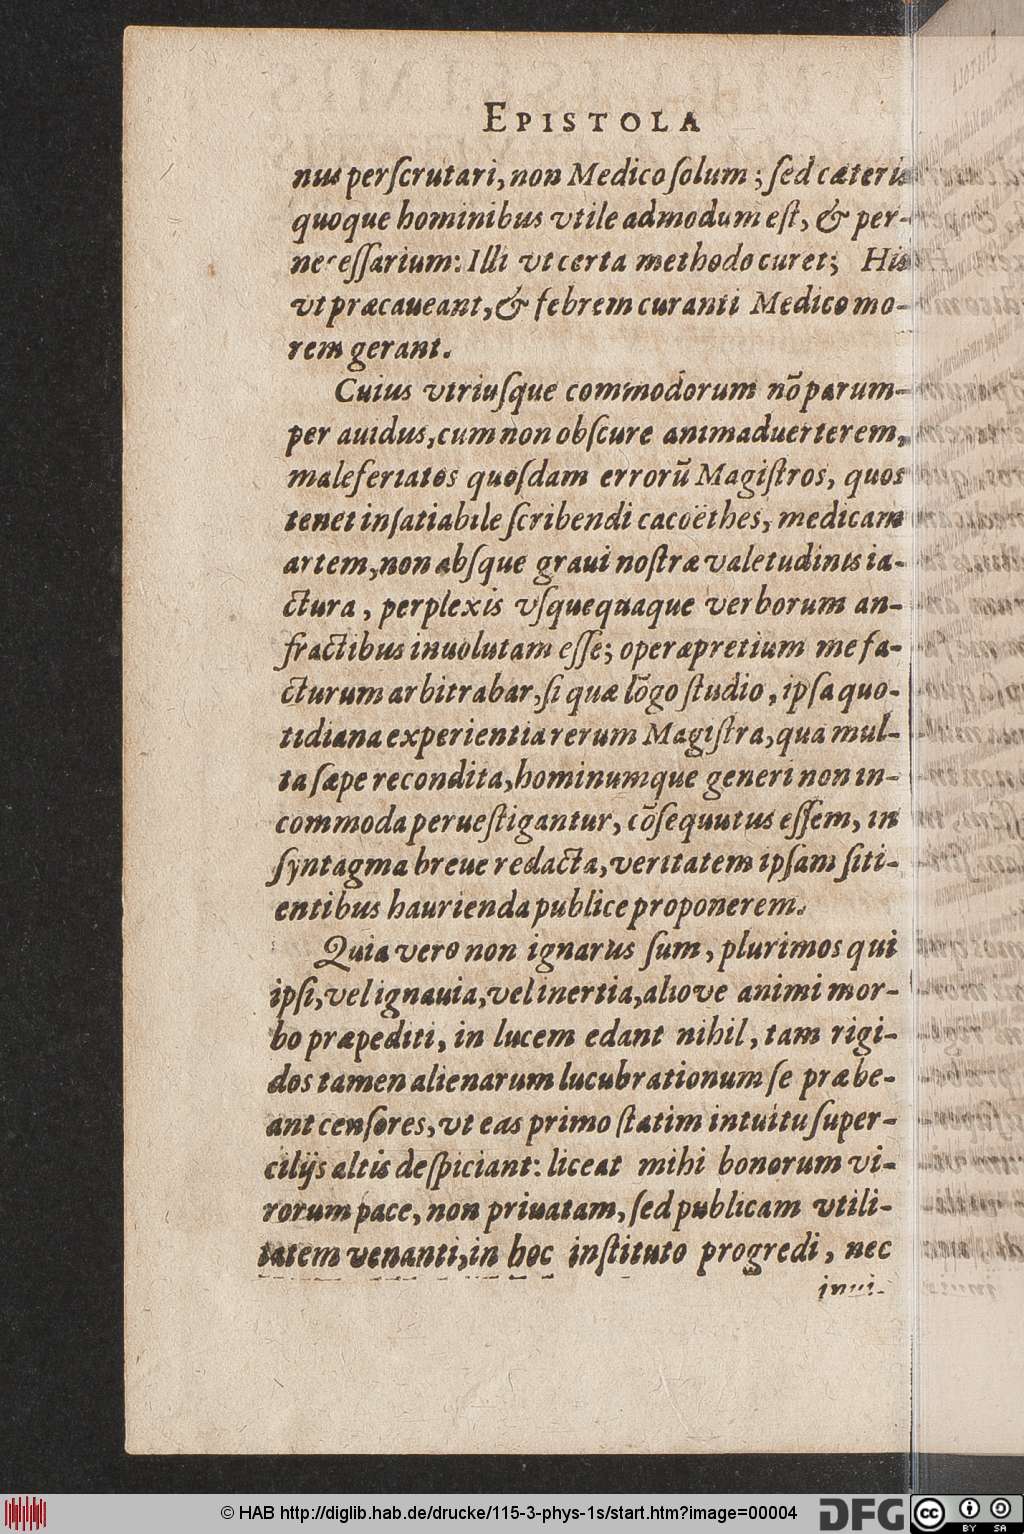 EPISTOLA
nus perſcrutari, non Medico ſolum; ſed cæteris
quoque hominibus vtile admodum eſt, & per-
neceſſarium: Illi vt certa methodo curet; His
vt præcaueant, & febrem curanti Medico mo-
rem gerant.
Cuius vtriuſque commodorum nō parum-
per auidus, cum non obſcure animaduerterem,
maleferiatos quoſdam errorū Magiſtros, quos
tenet inſatiabile ſcribendi cacoëthes, medicam
artem, non abſque graui noſtræ valetudinis ia-
ctura, perplexis vſquequaque verborum an-
fractibus inuolutam eſſe; operæpretium me fa-
cturum arbitrabar, ſi quæ lōgo ſtudio, ipſa quo-
tidiana experientia rerum Magiſtra, qua mul-
ta ſæpe recondita, hominumque generi non in-
commoda perueſtigantur, cōſequutus eſſem, in
ſyntagma breue redacta, veritatem ipſam ſiti-
entibus haurienda publice proponerem.
Quia vero non ignarus ſum, plurimos qui
ipſi, vel ignauia, vel inertia, aliove animi mor-
bo præpediti, in lucem edant nihil, tam rigi-
dos tamen alienarum lucubrationum ſe præbe-
ant cenſores, vt eas primo ſtatim intuitu ſuper-
cilijs altis deſpiciant: liceat mihi bonorum vi-
rorum pace, non priuatam, ſed publicam vtili-
tatem venanti, in hoc inſtituto progredi, nec
inui-
© HAB http://diglib.hab.de/drucke/115-3-phys-1s/start.htm?image=00004
DFG
cc BY SA